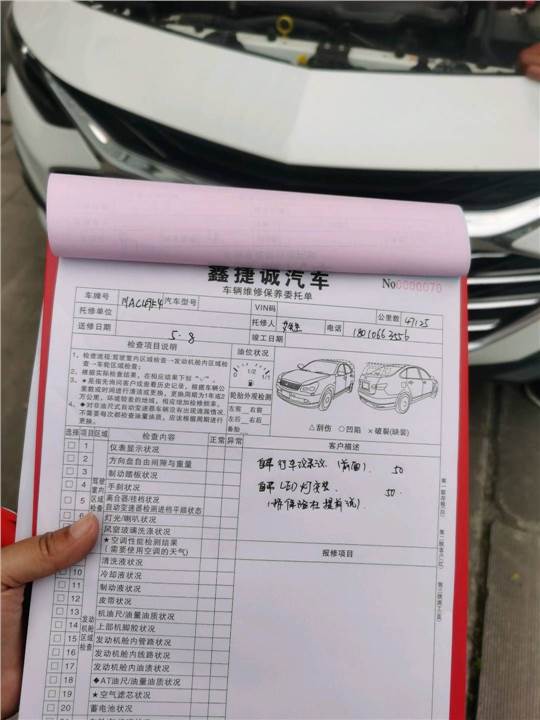 鑫捷诚汽车
车辆维修保养委托单
No 0000070
车牌号 汽车型号 VIN码 公里数 47125
托修单位 托修人 电话
送修日期 5-8 竣工日期
检查项目说明
1、检查流程:驾驶室内区域检查→发动机舱内区域检查→车轮区域检查;
2、根据实际检查结果,在相应结果下划“√”。
3、★是指先询问客户或查看历史记录,根据车辆公里数或时间进行清洁或更换。更换周期为1年或2万公里。环境较差的地域,相应增加检修频率。
4、◆对非油尺式自动变速器车辆没有出现渗漏情况不需要每次都检查油量油质,应该根据周期进行更换。
油位状况
0 1/2 1/1
轮胎外观检测
左前 右前
左后 右后
备胎
△刮伤 ○凹陷 ×破裂(缺装)
选择 项目 区域 检查内容 正常 异常
客户描述
自带行车记录仪 (前面). 50
自带LED灯安装 50.
驾驶室内区域检查
1 仪表显示状况
2 方向盘自由间隙与重量
3 制动踏板状况
4 手刹状况
5 离合器/挂档状况
自动变速器检测进档平顺状态
6 灯光/喇叭状况
风窗玻璃洗涤状况
★空调性能检测结果
(需要使用空调的天气)
报修项目
发动机舱区域检查
清洗液状况
10 冷却液状况
11 制动液状况
12 皮带状况
13 机油尺/油量油质状况
14 上部机脚胶状况
15 发动机舱内管路状况
16 发动机舱内线路状况
17 发动机舱内油渍状况
18 ◆AT油尺/油量油质状况
19 ★空气滤芯状况
20 蓄电池状况